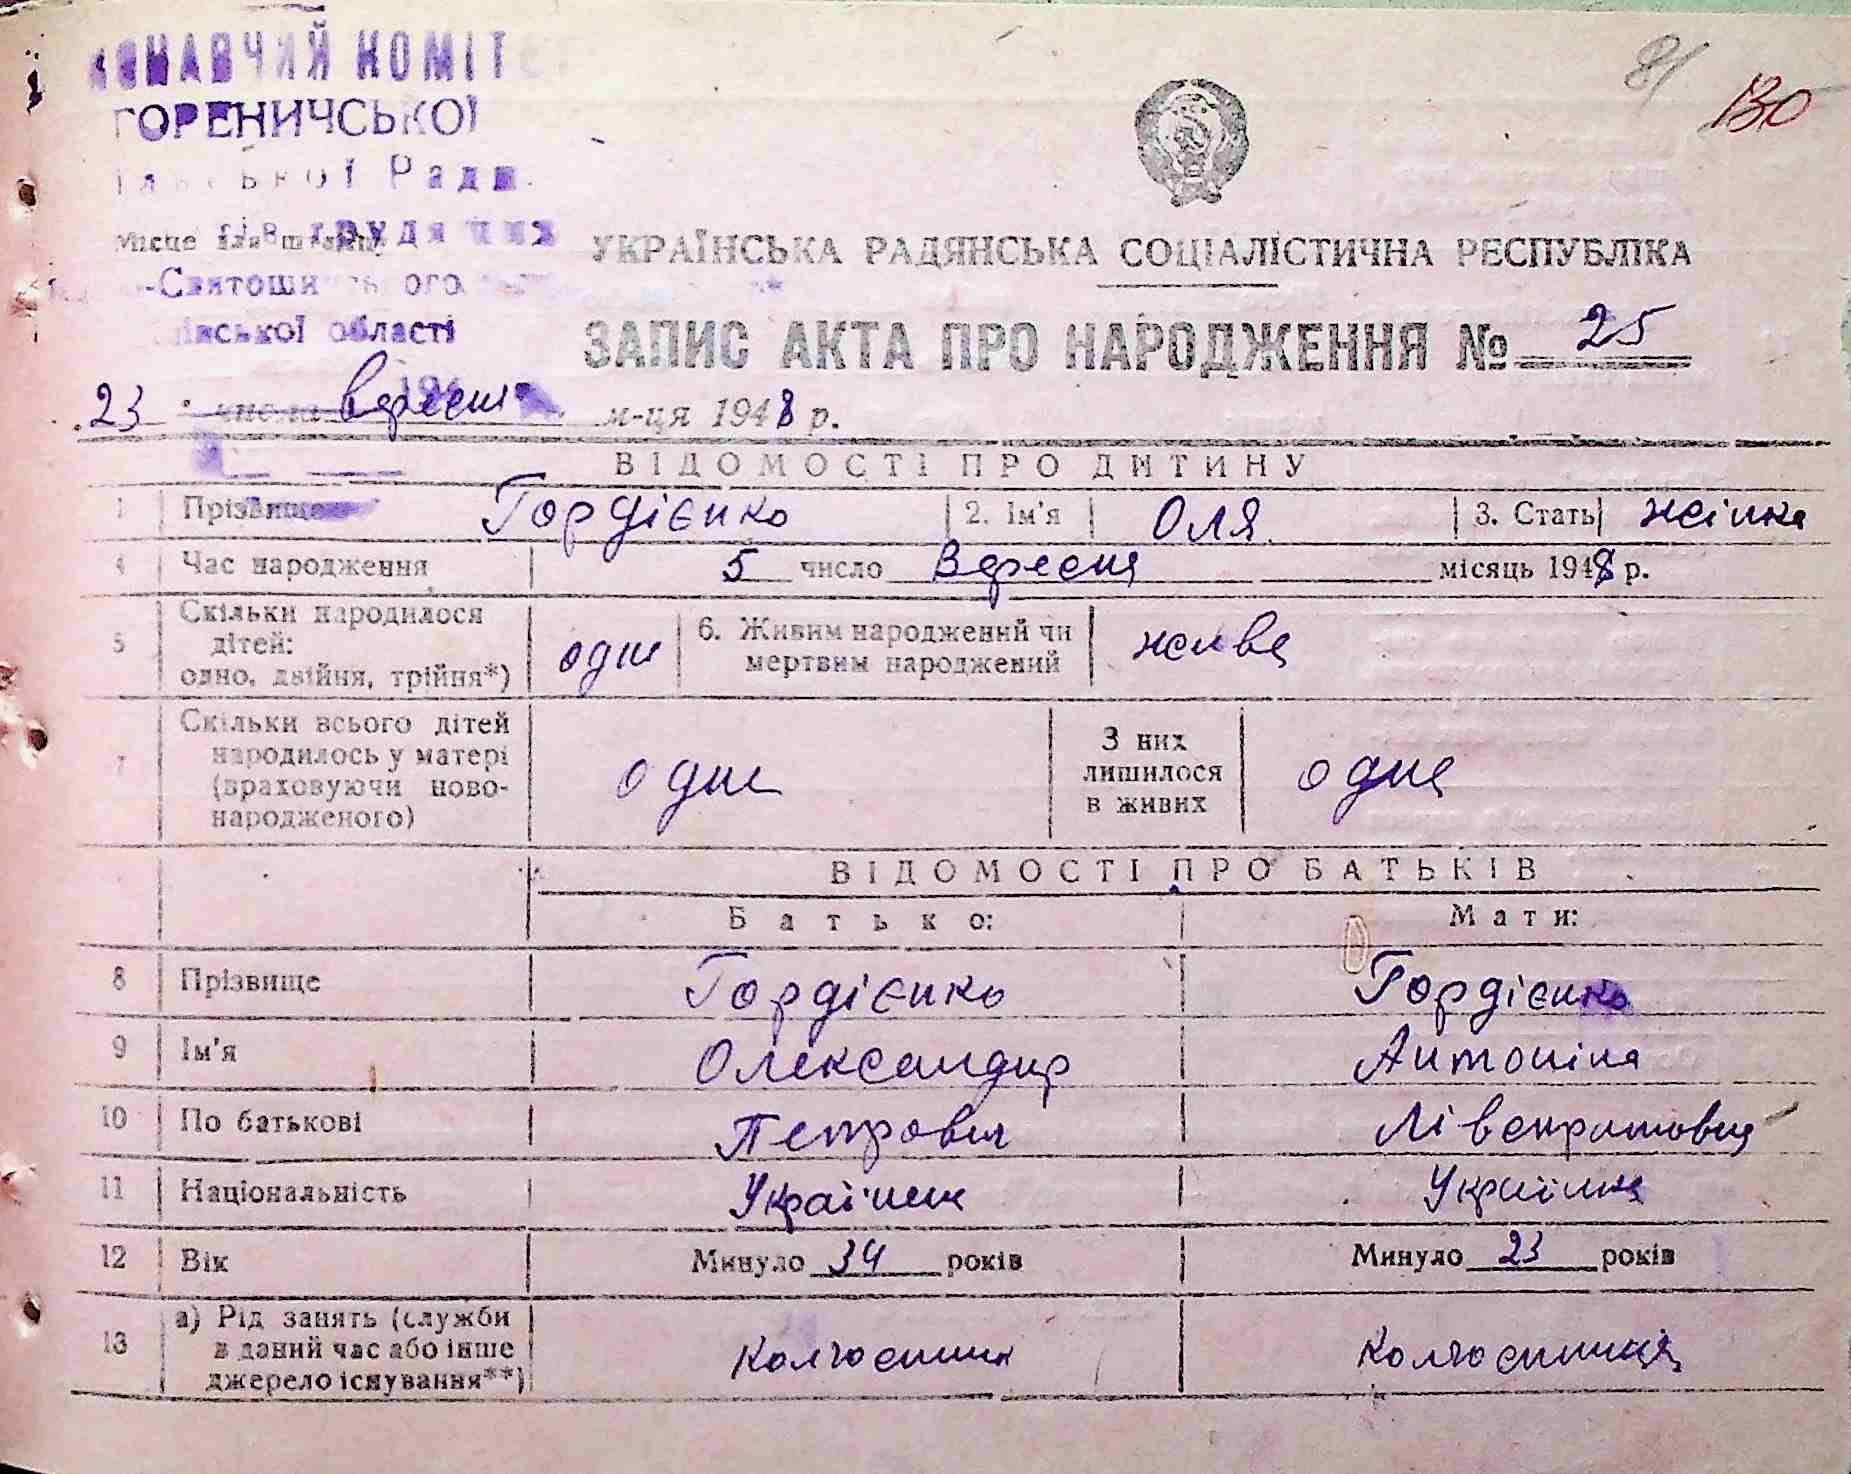 КОМІТ
ГОРЕНИЧСЬКОЇ
Ради
Місце
-Святошинського
області
81
130
УКРАЇНСЬКА РАДЯНСЬКА СОЦІАЛІСТИЧНА РЕСПУБЛІКА
ЗАПИС АКТА ПРО НАРОДЖЕННЯ № 25
23 числа вересня м-ця 1948 р.
ВІДОМОСТІ ПРО ДИТИНУ
1 Прізвище Гордієнко 2. Ім'я Оля 3. Стать жінка
4 Час народження 5 число вересня місяць 1948 р.
5 Скільки народилося дітей: одно, двійня, трійня*) одна 6. Живим народжений чи мертвим народжений жива
7 Скільки всього дітей народилось у матері (враховуючи новонародженого) одна З них лишилося в живих одна
ВІДОМОСТІ ПРО БАТЬКІВ
Батько: Мати:
8 Прізвище Гордієнко Гордієнко
9 Ім'я Олександр Антоніна
10 По батькові Петрович
11 Національність Українець Українка
12 Вік Минуло 34 років Минуло 23 років
13 а) Рід занять (служби в даний час або інше джерело існування**) Колгоспник Колгоспниця